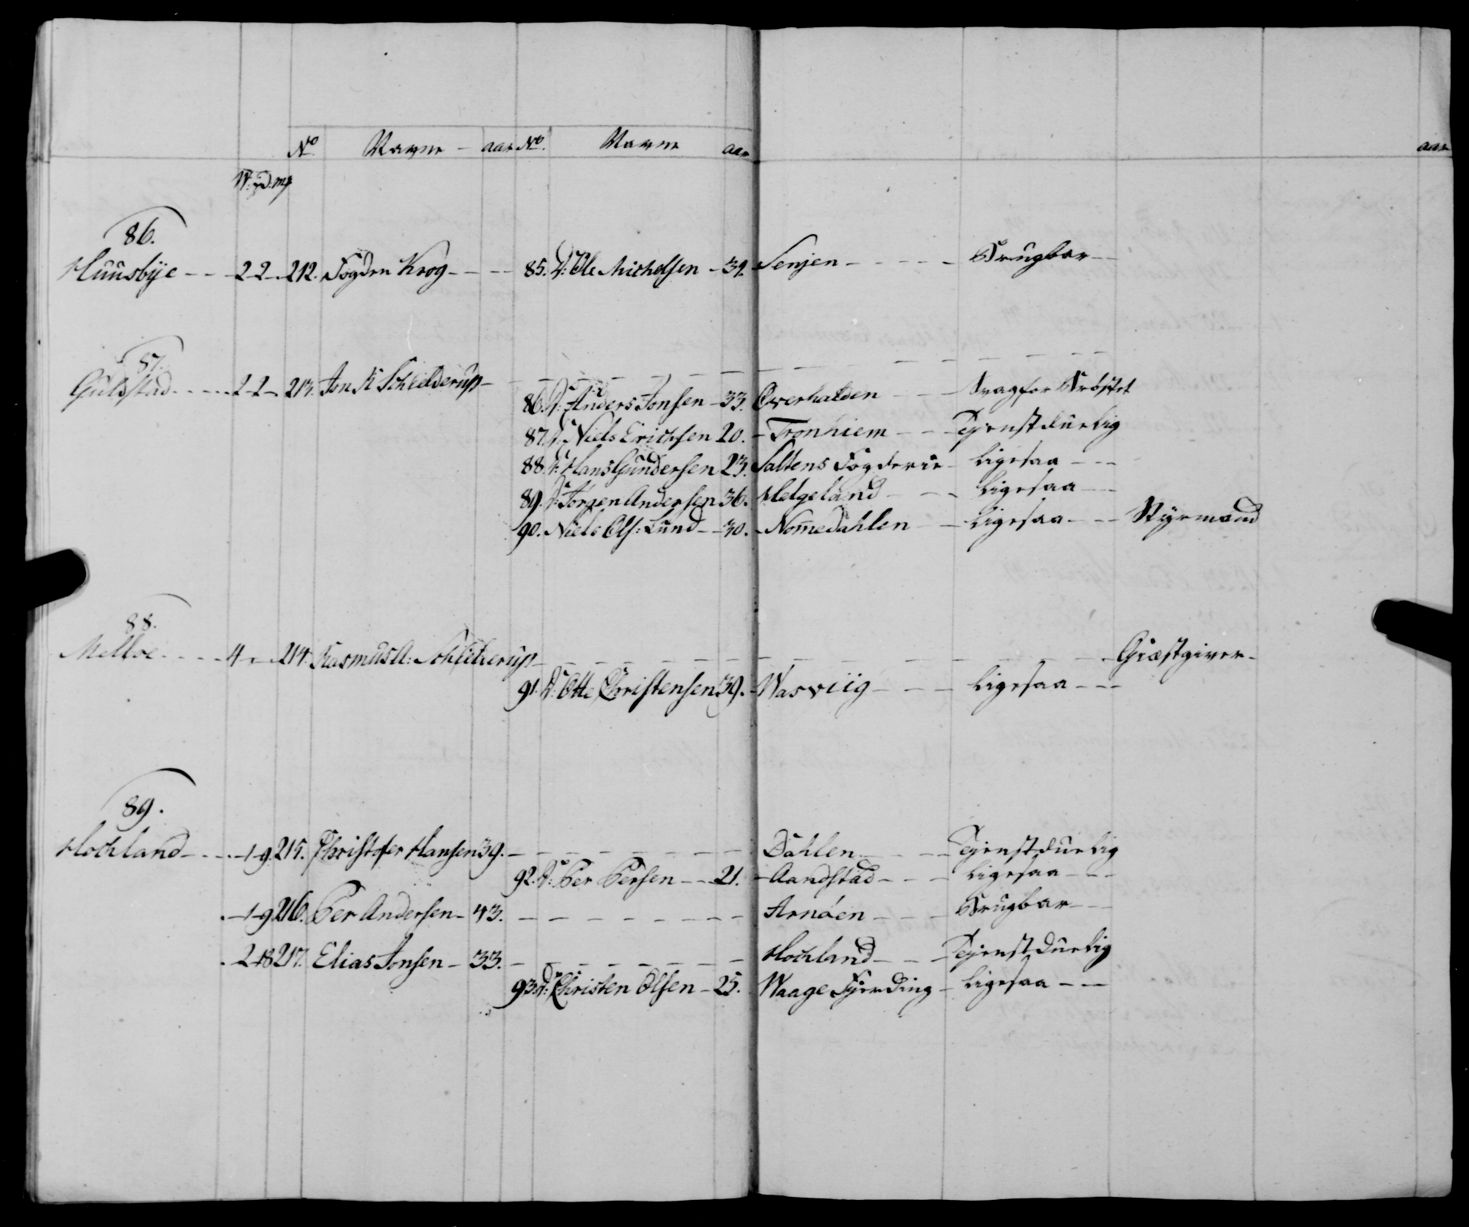 No Navne aar No. Navne aar aar
W: pd. mk
86.
Huusbÿe 2 2 212. Fogden Krog 85. D: Ole Michelsen 34. Senjen Brugbar
87.
Gulstad 2 2 213. Jon K Schielderup
86. D: Anders Jonsen 33. Overhalden Svag for Brÿstet
87. D: Niels Erichsen 20. Tronhiem Tienstduelig
88. D: Hans Gundersen 23. Saltens Fogderie ligesaa
89. D: Jørgen Andersen 36. Helgeland ligesaa
90. Niels Ols: Lund 30. Nomedahlen ligesaa Stÿrmand
88.
Melloe 4 214. Rasmus A: Schielderup Giæstgiver
91. D: Otte Christensen 39. Wasviig ligesaa
89.
Hochland 1 9 215. Christofer Hansen 39. Dahlen Tienstduelig
92. D: Per Persen 21. Aandstad ligesaa
1 9 216. Per Andersen 43. Arnøen Brugbar
2 18 217. Elias Jonsen 33. Hochland Tienstduelig
93. D: Christen Olsen 25. Waage Fierding ligesaa